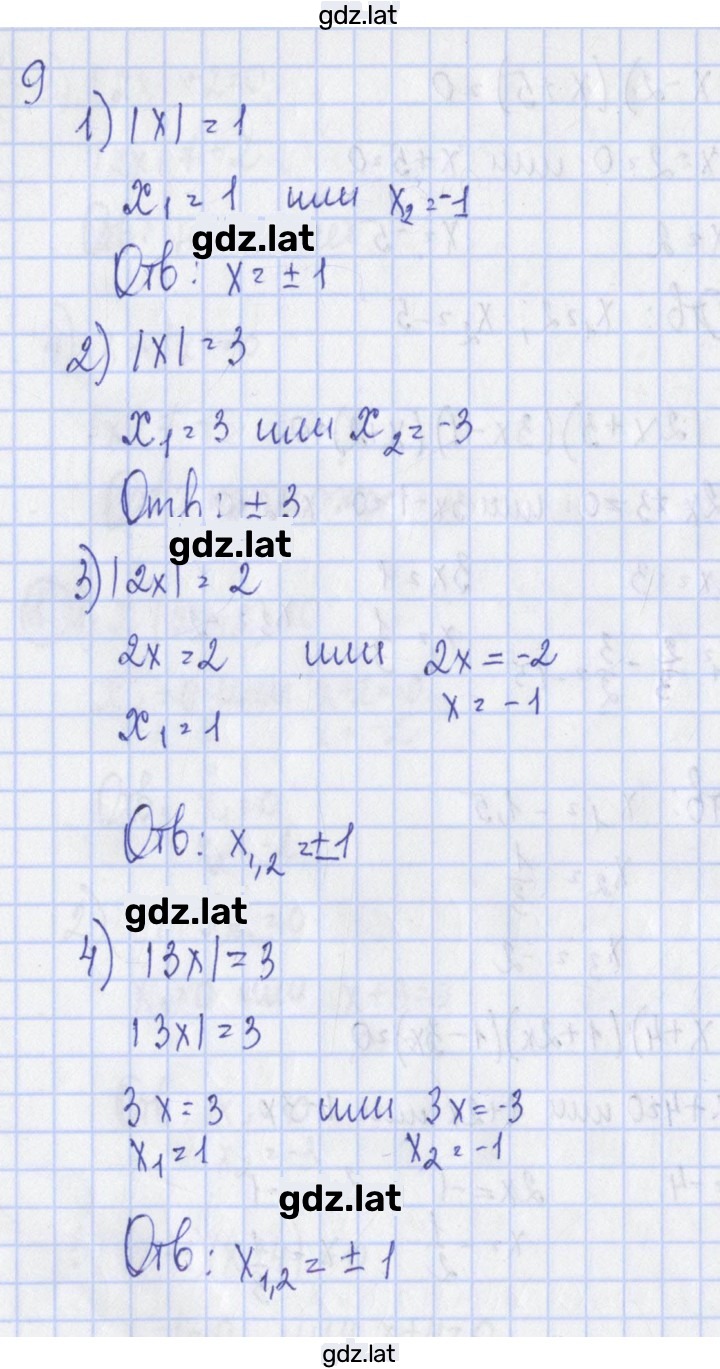 gdz.lat
9
1) |x| = 1
x₁ = 1 или x₂ = -1
gdz.lat
Отв: x = ± 1
2) |x| = 3
x₁ = 3 или x₂ = -3
Отв: ± 3
gdz.lat
3) |2x| = 2
2x = 2 или 2x = -2
x₁ = 1 x = -1
Отв: x₁,₂ = ±1
gdz.lat
4) |3x| = 3
|3x| = 3
3x = 3 или 3x = -3
x₁ = 1 x₂ = -1
gdz.lat
Отв: x₁,₂ = ± 1
gdz.lat